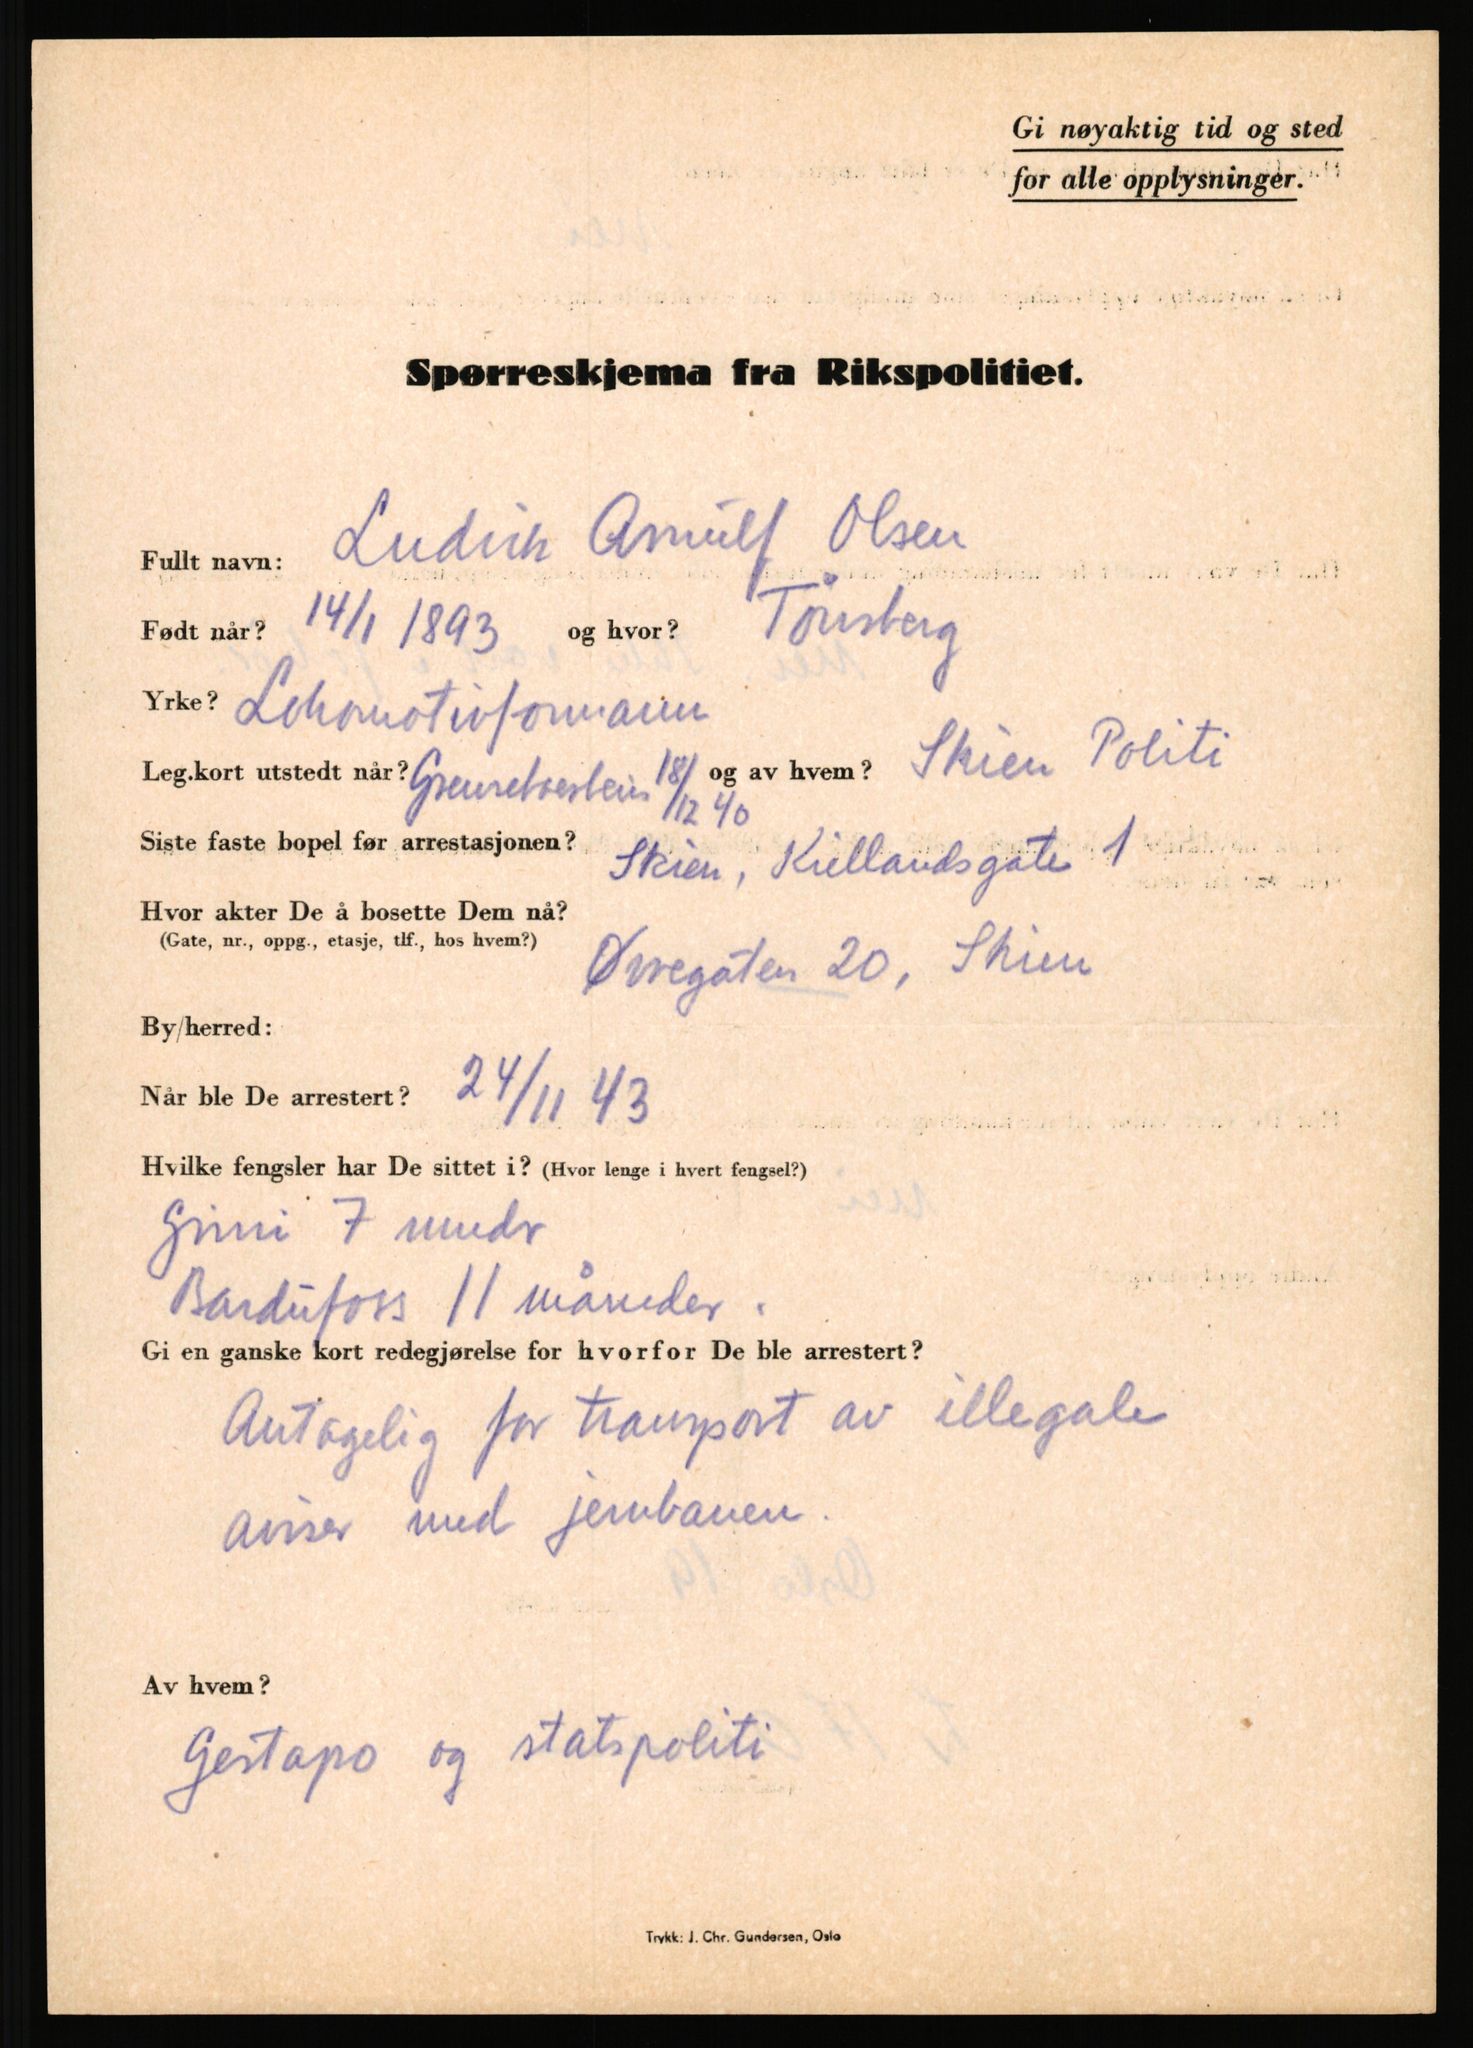 Gi nøyaktig tid og sted
for alle opplysninger.
Spørreskjema fra Rikspolitiet.
Fullt navn: Ludvik Arnulf Olsen
Født når? 14/1 1893 og hvor? Tønsberg
Yrke? Lokomotivformann
Leg.kort utstedt når? Grensebosteis 18/12 40 og av hvem? Skien Politi
Siste faste bopel før arrestasjonen? Skien, Kiellandsgate 1
Hvor akter De å bosette Dem nå?
(Gate, nr., oppg., etasje, tlf., hos hvem?) Øvregaten 20, Skien
By/herred:
Når ble De arrestert? 24/11 43
Hvilke fengsler har De sittet i? (Hvor lenge i hvert fengsel?)
Grini 7 mndr
Bardufoss 11 måneder.
Gi en ganske kort redegjørelse for hvorfor De ble arrestert?
Antagelig for transport av illegale
aviser med jernbanen.
Av hvem?
Gestapo og statspoliti
Trykk: J. Chr. Gundersen, Oslo